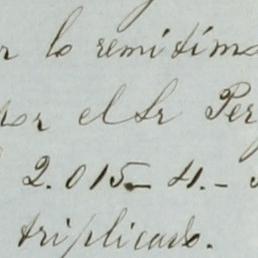 r lo remitimo
por el Sr Per
2.015 - 4. -
triplicado.